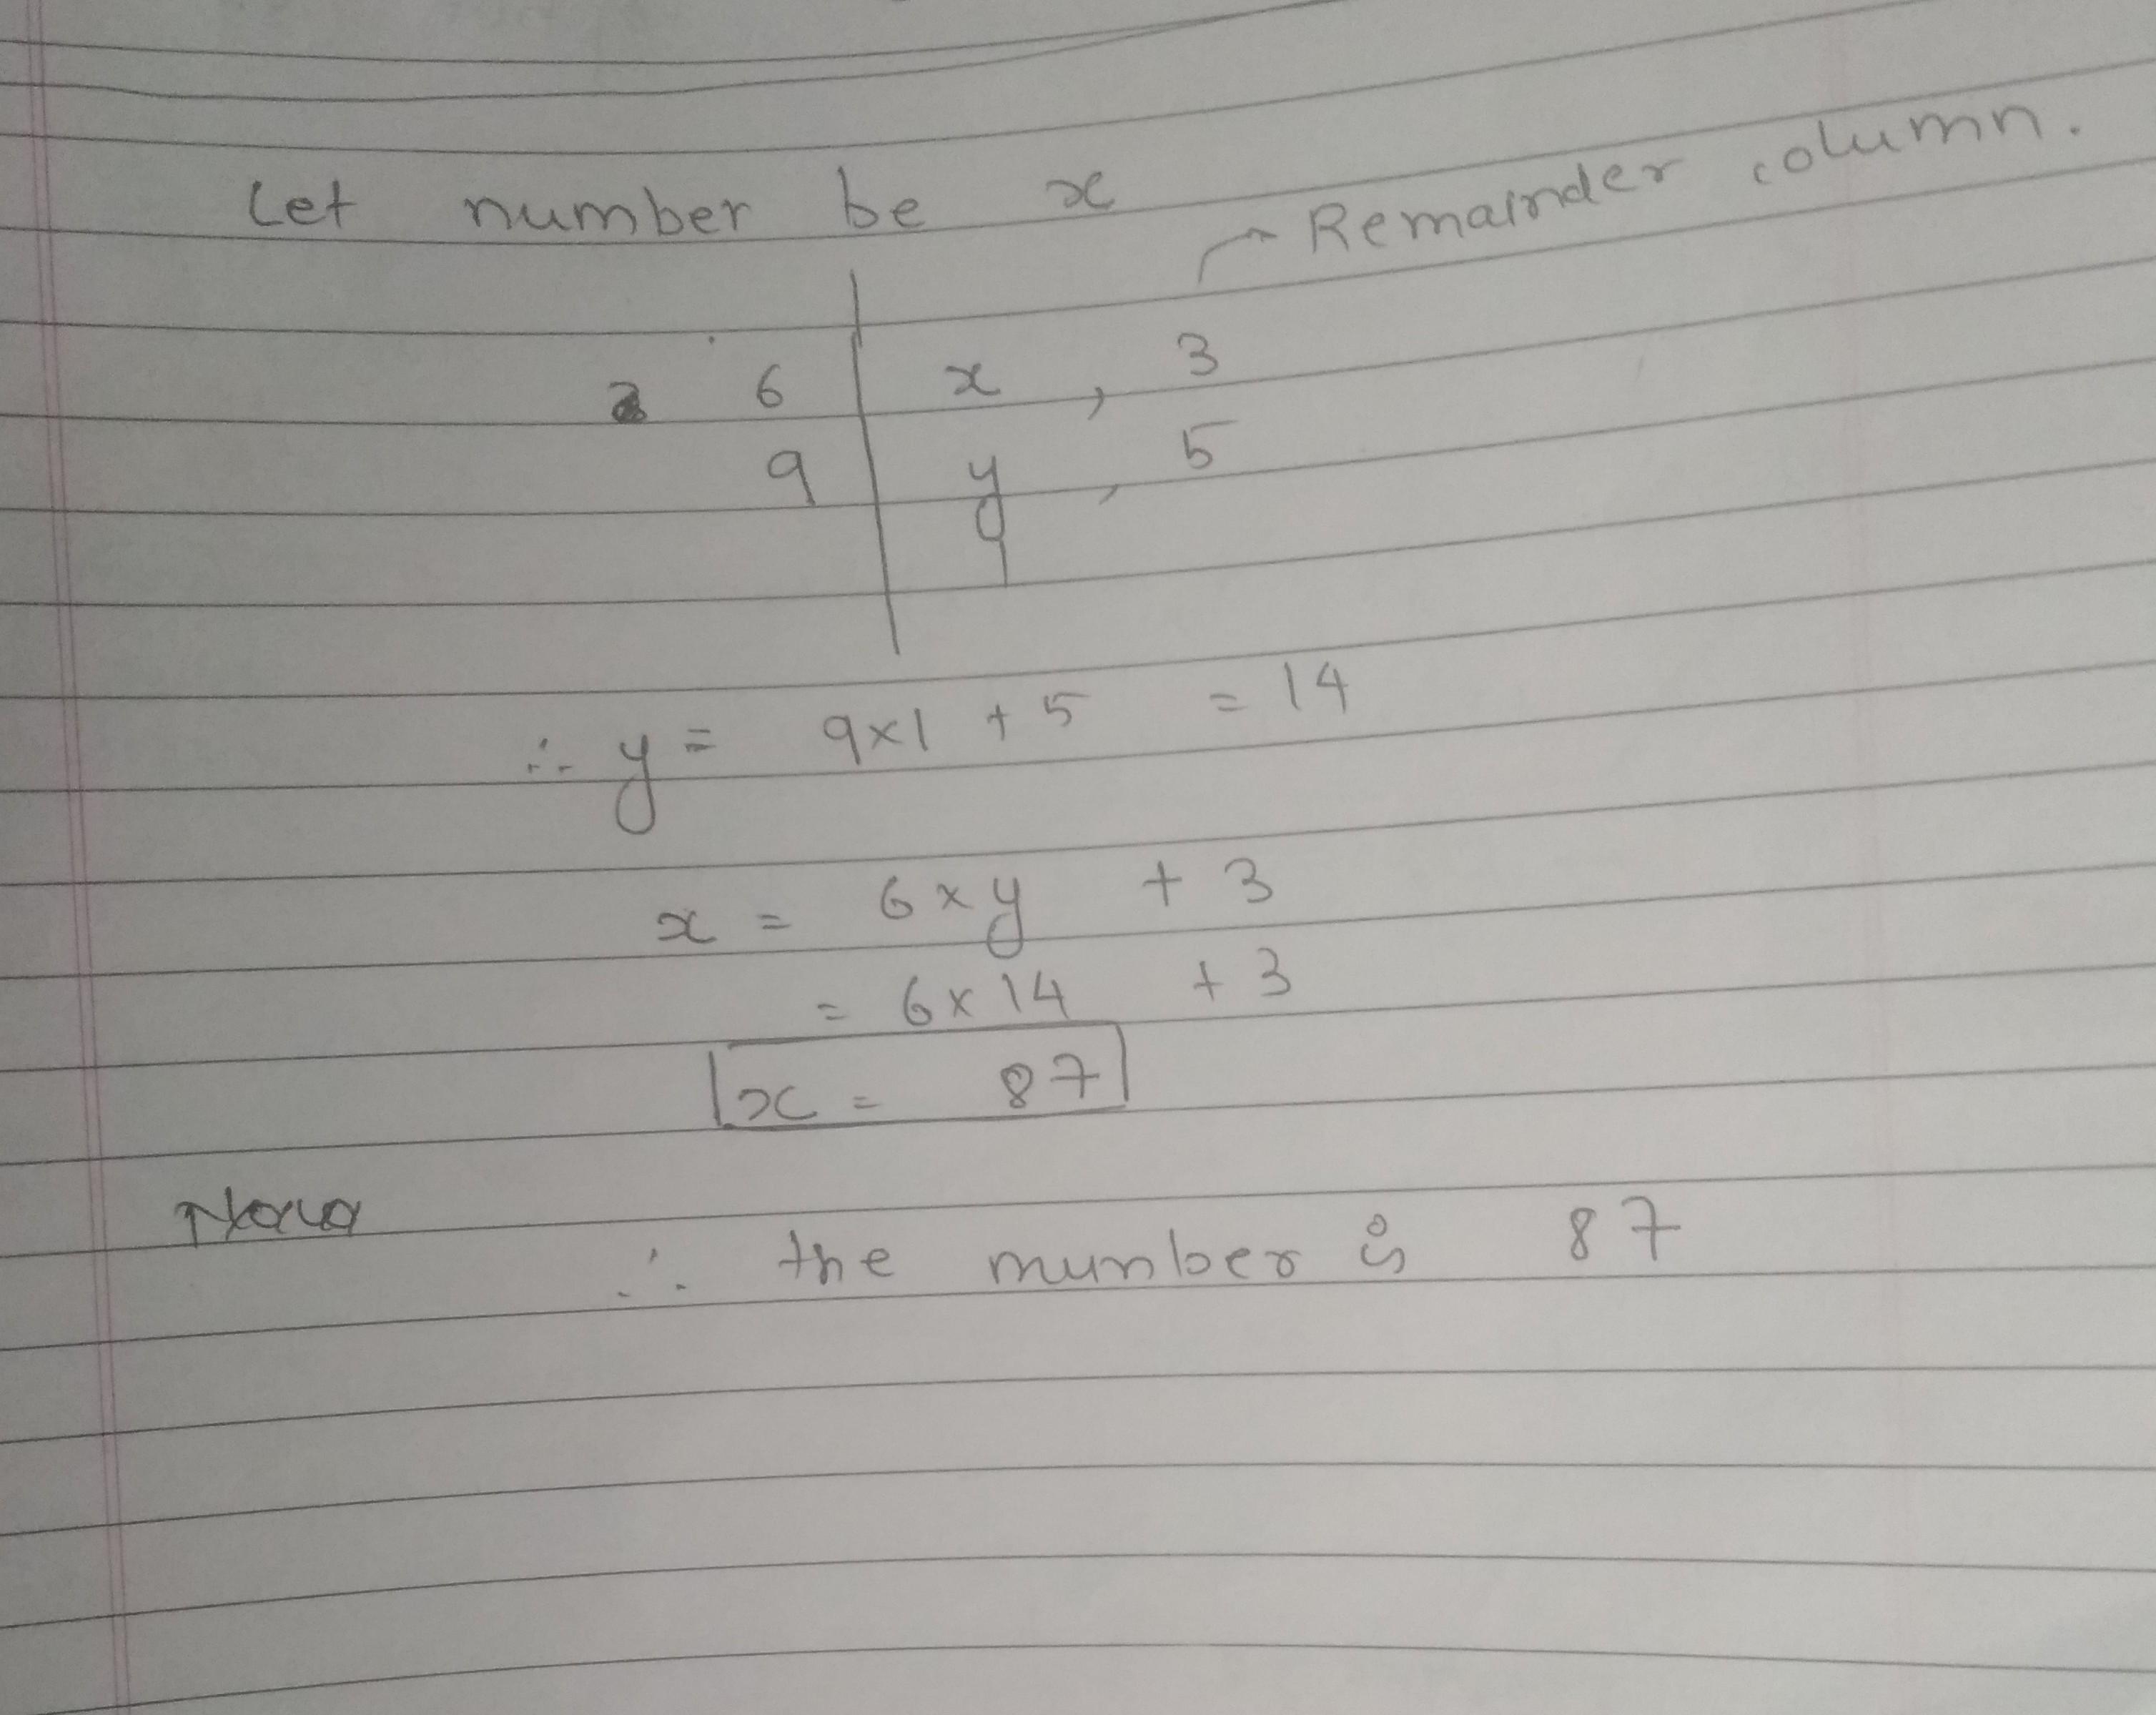 Let number be x
→ Remainder column.
6 | x , 3
9 | y , 5
∴ y = 9×1 + 5 = 14
x = 6×y + 3
= 6×14 + 3
x = 87
∴ the number is 87